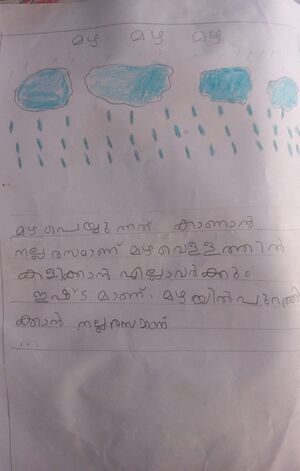 മഴ മഴ മഴ
മഴ പെയ്യുന്നത് കാണാൻ
നല്ല രസമാണ് മഴ വെള്ളത്തിൽ
കളിക്കാൻ എല്ലാവർക്കും
ഇഷ്ടമാണ്. മഴയിൽ പുറത്തി
ക്കാൻ നല്ല രസമാണ്
...